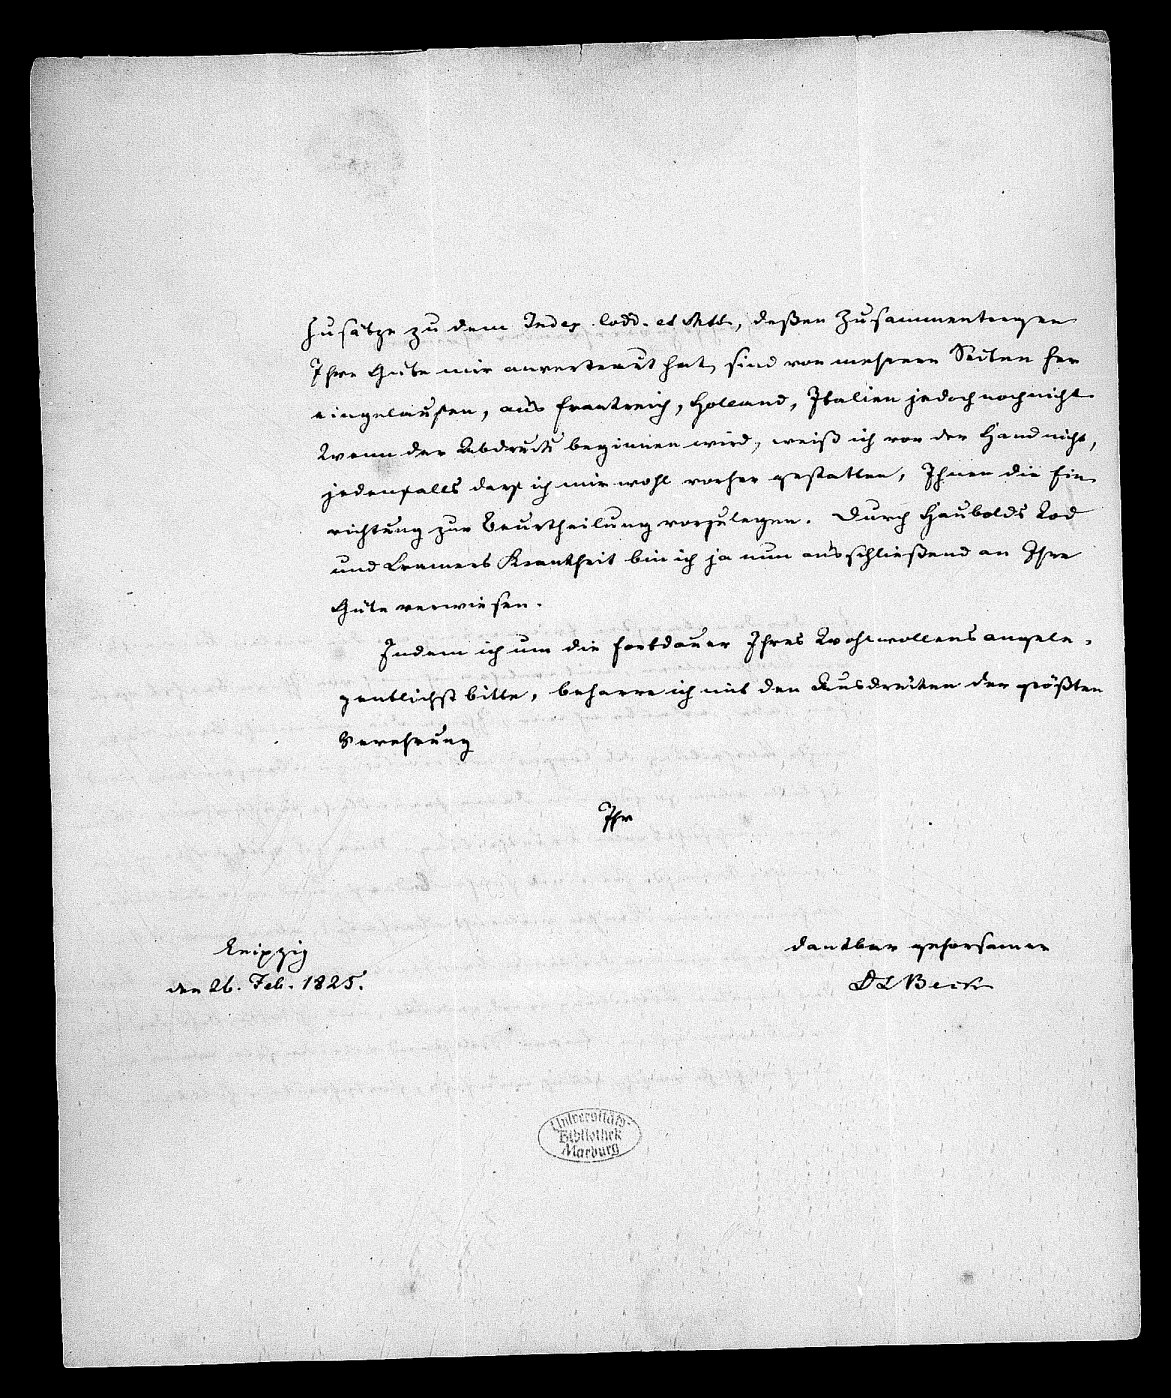 Zusätze zu dem Index Codd. et Mstt., deßen Zusammentragen
Ihre Güte mir anvertraut hat, sind von mehrern Seiten her
eingelaufen, aus Frankreich, Holland, Italien jedoch noch nicht.
Wenn der Abdruck beginnen wird, weiß ich vor der Hand nicht,
jedenfalls darf ich mir wohl vorher gestatten, Ihnen die Ein
richtung zur Beurtheilung vorzulegen. Durch Haubolds Tod
und Cramers Krankheit bin ich ja nun ausschließend an Ihre
Güte verwiesen.
Indem ich um die Fortdauer Ihres Wohlwollens angele-
gentlichst bitte, beharre ich mit dem Ausdrucke der größten
Verehrung
Ihr
Leipzig
den 26. Feb. 1825.
dankbar gehorsamer
Beck
Universitäts-
Bibliothek
Marburg